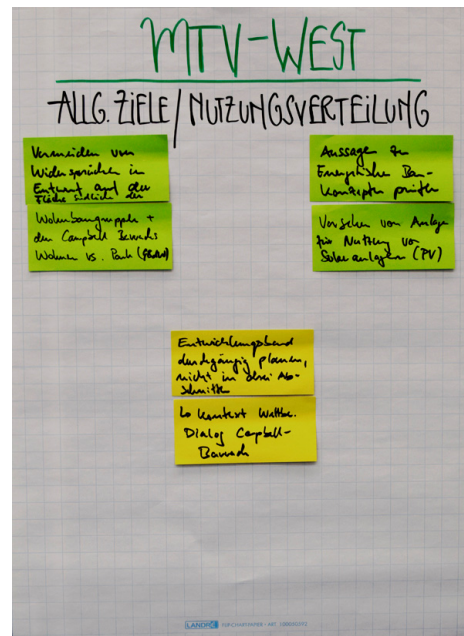 MTV-WEST
ALLG. ZIELE / NUTZUNGSVERTEILUNG
Vermeiden von
Widersprüchen in
Entwurf auf der
Fläche südlich der
Wohnbaugruppen +
den Campbell Barracks
Wohnen vs. Park
Aussagen zu
Energetische Bau-
konzepte prüfen
Vorsehen von Anlagen
für Nutzung von
Solaranlagen (PV)
Entwicklungsband
durchgängig planen,
nicht in drei Ab-
schnitte
Kontext Wettbe.
Dialog Campbell-
Barrack
LANDRÉ